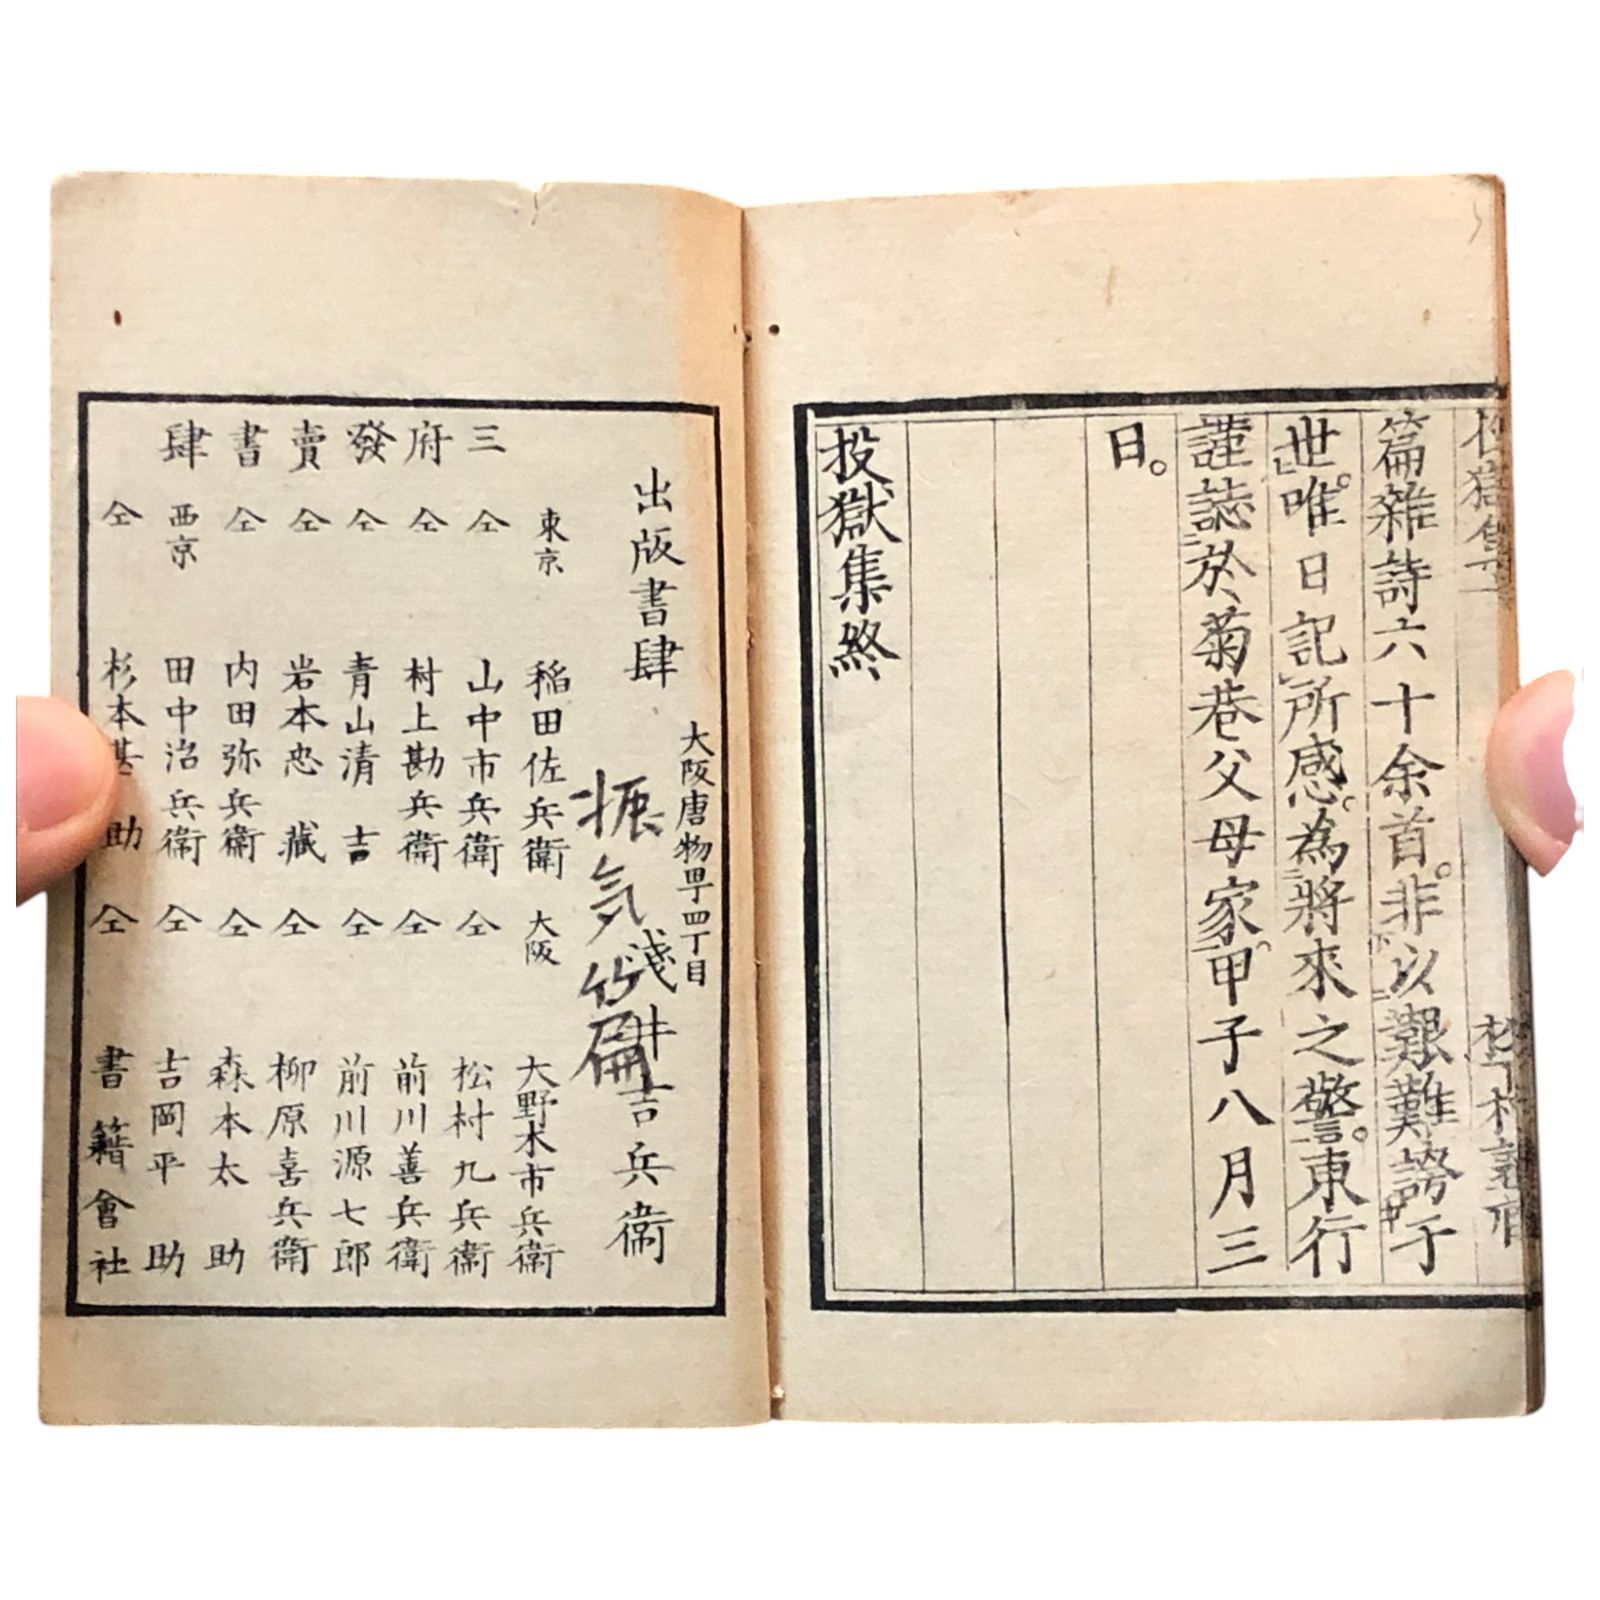 篇雜詩六十余首。非以艱難誇于
世。唯日記所感。為將來之警。東行
謹誌於菊巷父母家。甲子八月三
日。
投獄集終
大阪唐物甼四丁目
出版書肆 淺井吉兵衞
振気竹篇
三府發賣書肆
東京 稲田佐兵衞
仝 山中市兵衞
仝 村上勘兵衞
仝 青山清吉
仝 岩本忠藏
仝 内田弥兵衞
西京 田中治兵衞
仝 杉本甚助
大阪 大野木市兵衞
仝 松村九兵衞
仝 前川善兵衞
仝 前川源七郎
仝 柳原喜兵衞
仝 森本太助
仝 吉岡平助
仝 書籍會社